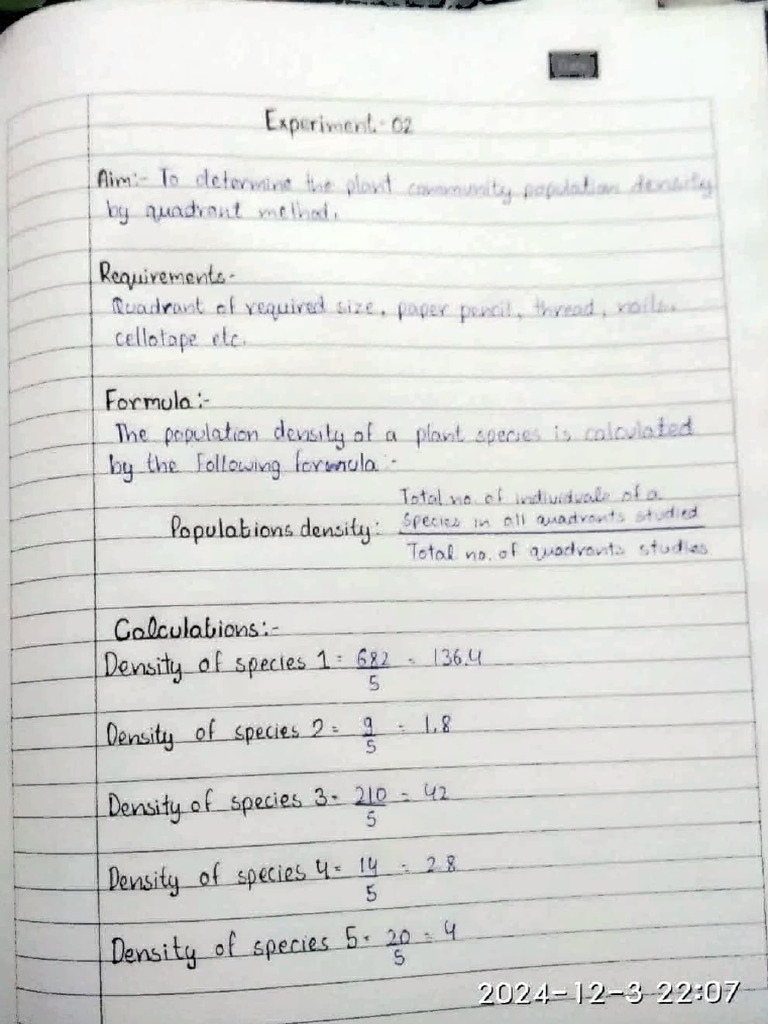 Date
Experiment-02
Aim:- To determine the plant community population density
by quadrant method.
Requirements-
Quadrant of required size, paper pencil, thread, nails,
cellotape etc.
Formula:-
The population density of a plant species is calculated
by the following formula:-
Total no. of individuals of a
Populations density: Species in all quadrants studied
Total no. of quadrants studies
Calculations:-
Density of species 1 = 682/5 = 136.4
Density of species 2 = 9/5 = 1.8
Density of species 3 = 210/5 = 42
Density of species 4 = 14/5 = 2.8
Density of species 5 = 20/5 = 4
2024-12-3 22:07